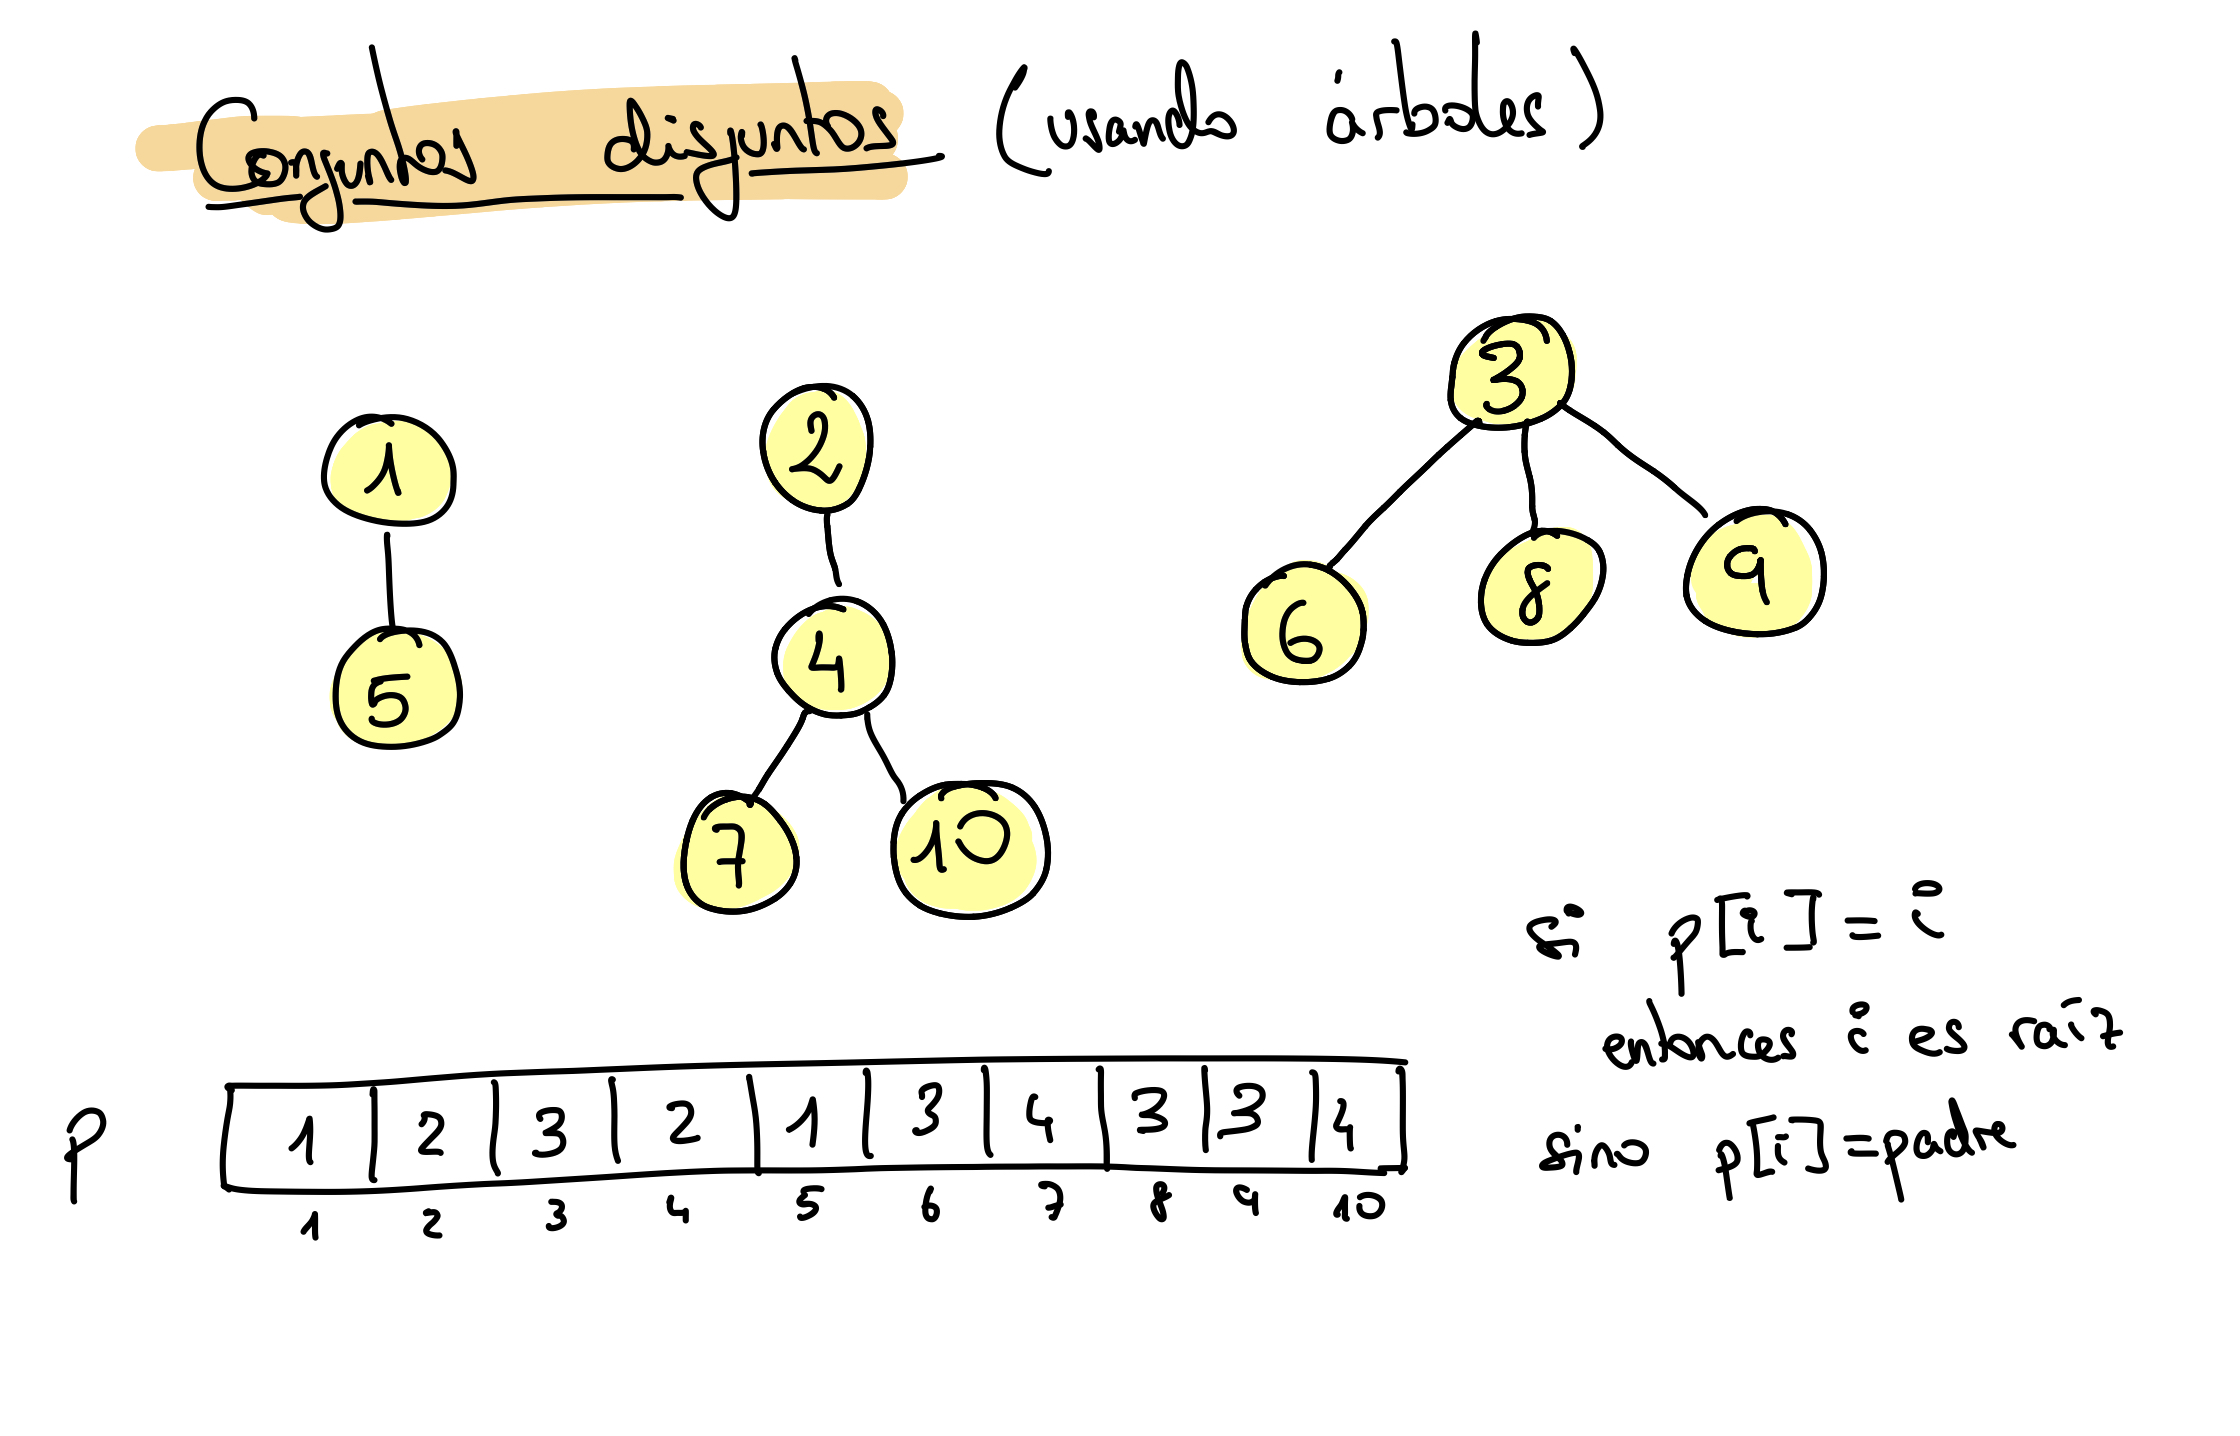 Conjuntos disjuntos (usando árboles)
3
1
2
8
9
6
5
4
7
10
si p[i] = i
entonces i es raíz
sino p[i] = padre
p 1 2 3 2 1 3 4 3 3 4
1 2 3 4 5 6 7 8 9 10